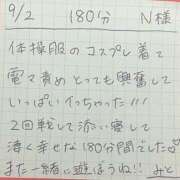 9/2 180分 N様
体操服のコスプレ着て
電マ責めとっても興奮して
いっぱいイっちゃった!!!
2回戦して添い寝して
凄く幸せな180分間でした♡
また一緒に遊ぼうね!! みと